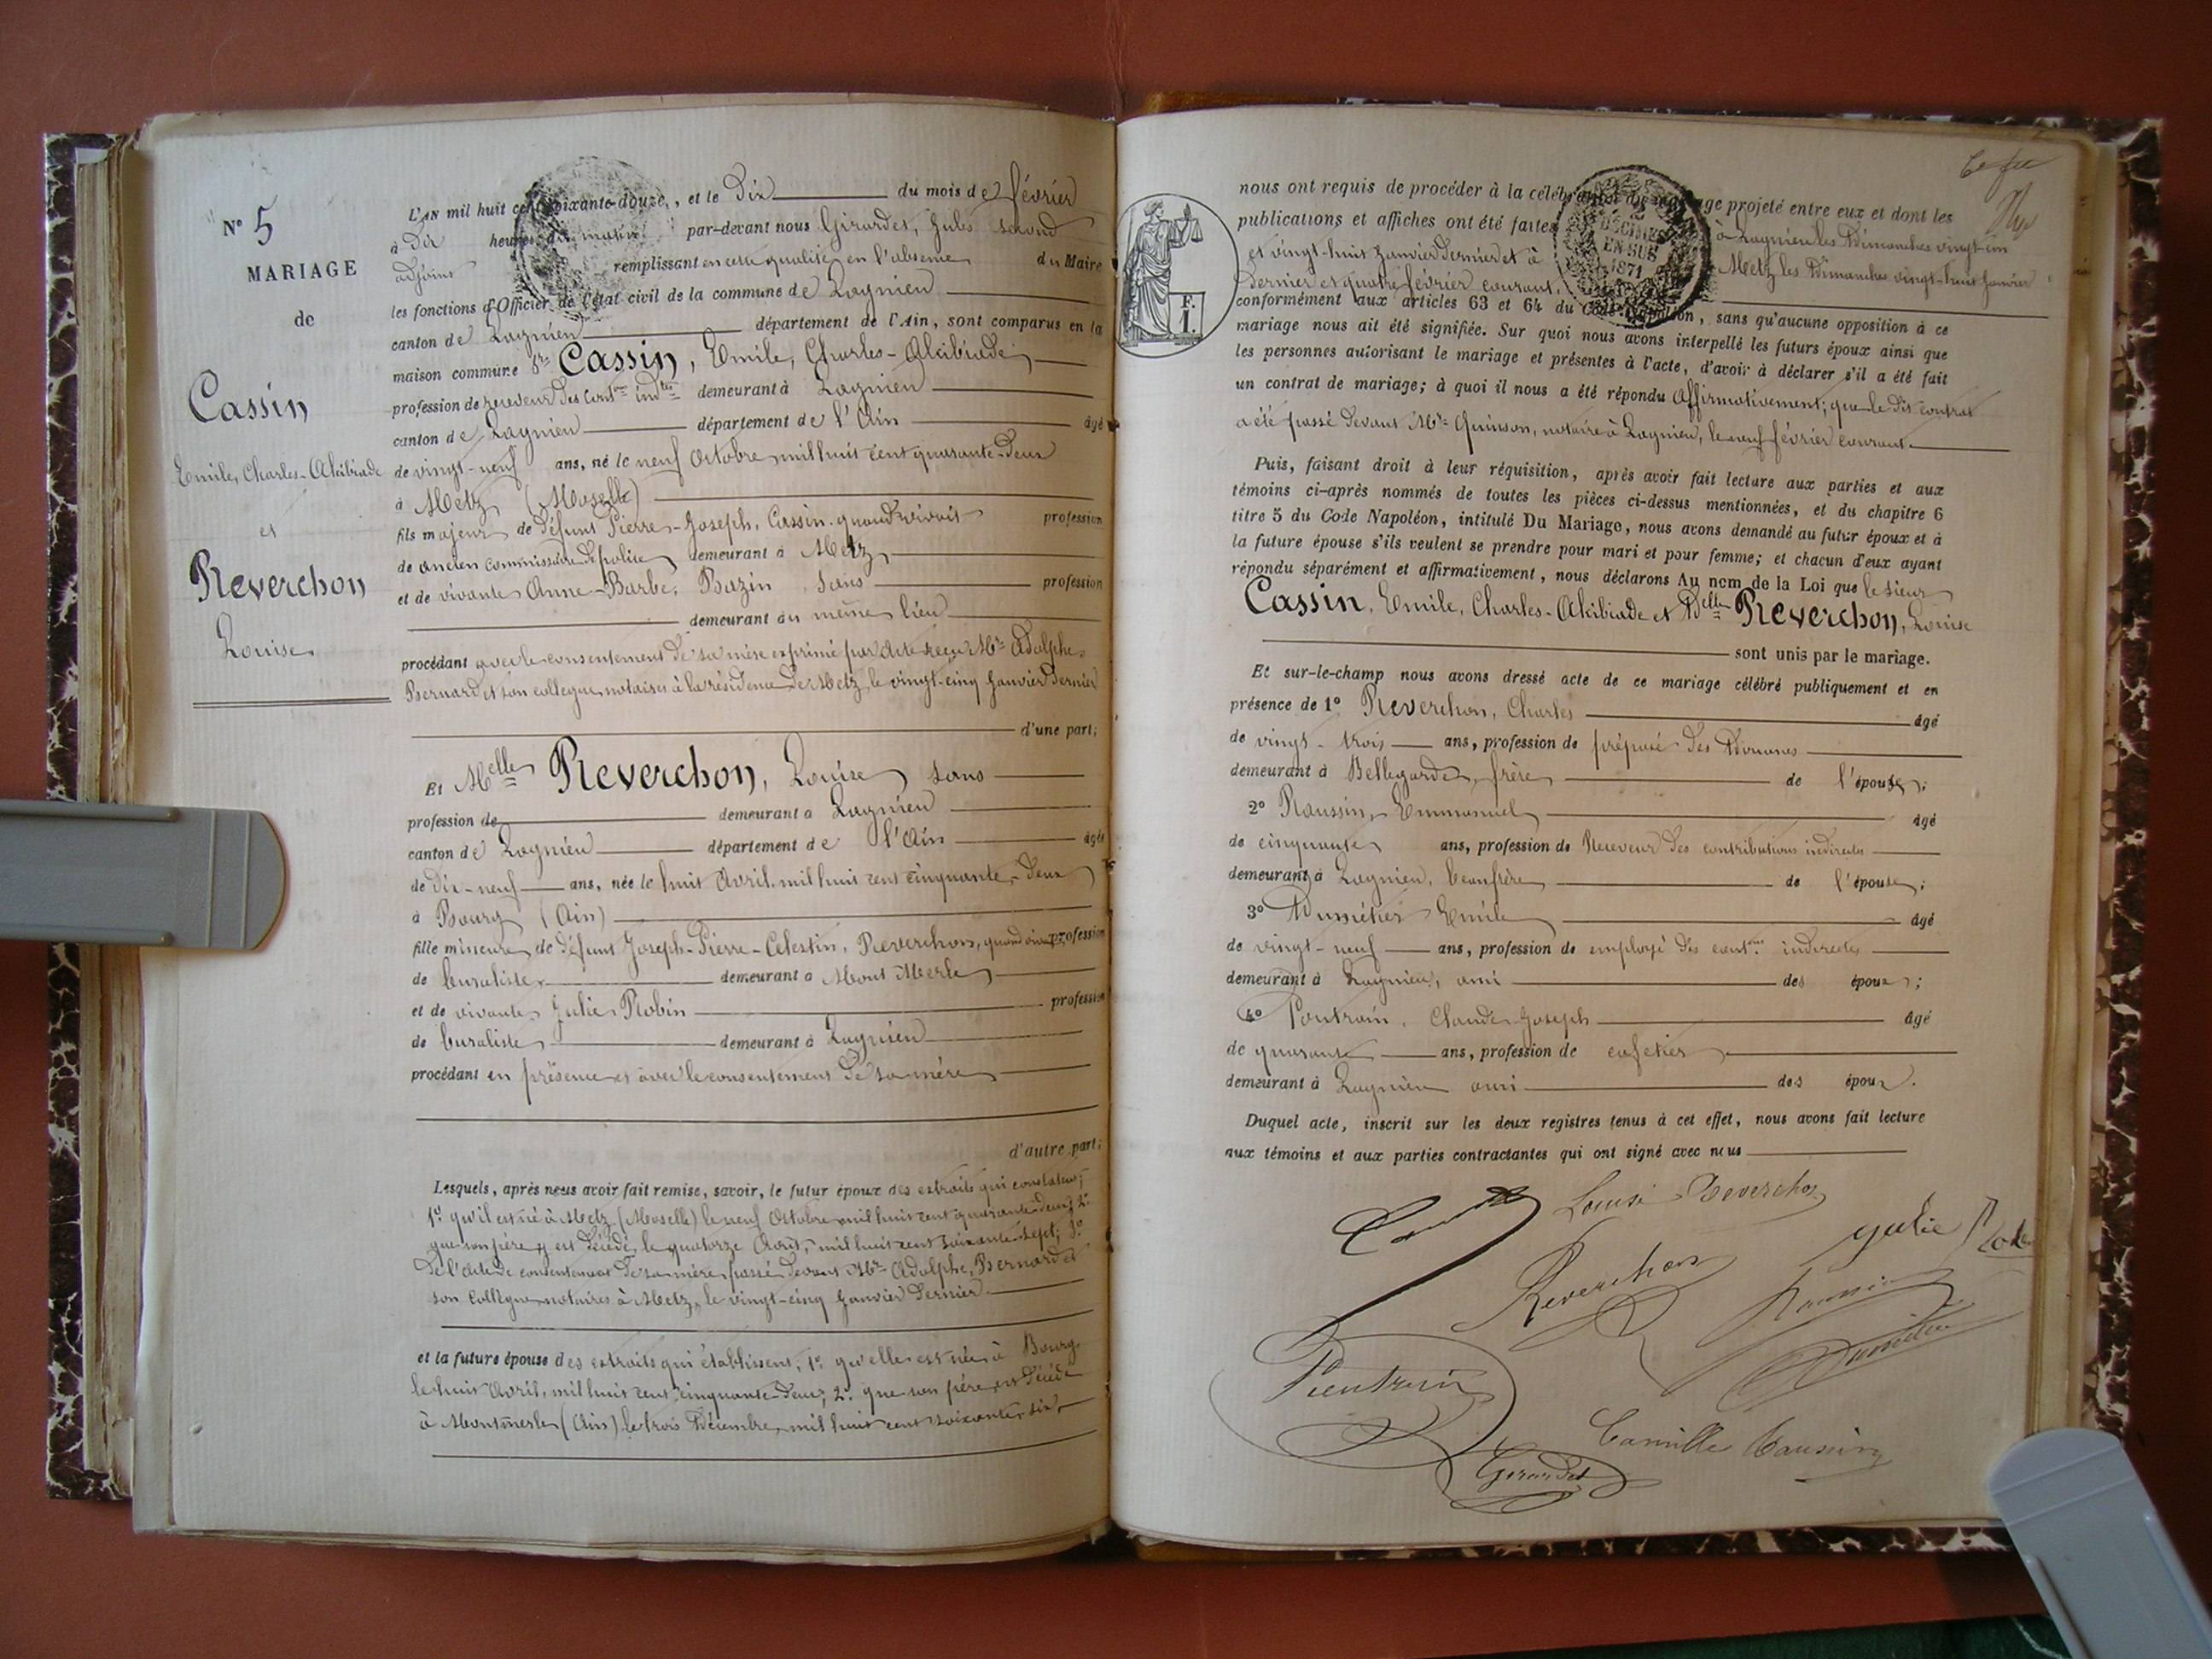 N° 5
MARIAGE
de
Cassin
Emile, Charles-Alcibiade
et
Reverchon
Louise
L'AN mil huit cent soixante-douze, et le Dix du mois de février
à Dix heures du matin par-devant nous Girardet, Jules second
adjoint remplissant en cette qualité, en l'absence du Maire
les fonctions d'Officier de l'état civil de la commune de Lagnieu
canton de Lagnieu département de l'Ain, sont comparus en la
maison commune Sr Cassin, Emile, Charles-Alcibiade
profession de receveur des Contres indtes demeurant à Lagnieu
canton de Lagnieu département de l'Ain âgé
de vingt-neuf ans, né le neuf Octobre mil huit cent quarante-deux
à Metz (Moselle)
fils majeur de défunt Pierre-Joseph, Cassin quand vivait profession
de ancien commissaire de police demeurant à Metz
et de vivante Anne-Barbe, Bazin sans profession
demeurant au même lieu
procédant avec le consentement de sa mère exprimé par acte reçu Mre Adolphe
Bernard et son collegue, notaires à la résidence de Metz, le vingt-cinq Janvier dernier
d'une part;
Et Melle Reverchon, Louise sans
profession de demeurant à Lagnieu
canton de Lagnieu département de l'Ain âgée
de dix-neuf ans, née le huit Avril, mil huit cent cinquante-deux
à Bourg (Ain)
fille mineure de défunt Joseph-Pierre-Celestin, Reverchon, quand vivait profession
de buraliste demeurant à Mont Merle
et de vivante Julie Robin profession
de buraliste demeurant à Lagnieu
procédant en présence et avec le consentement de sa mère
d'autre part;
Lesquels, après nous avoir fait remise, savoir, le futur époux des extraits qui constatent;
1° qu'il est né à Metz (Moselle) le neuf Octobre mil huit cent quarante-deux, 2°
que son père y est décédé, le quatorze Août, mil huit cent soixante-sept; 3°
de l'acte de consentement de sa mère, passé devant Mre Adolphe, Bernard et
son Collègue, notaires à Metz, le vingt-cinq Janvier dernier
et la future épouse des extraits qui établissent, 1° qu'elle est née à Bourg
le huit Avril, mil huit cent cinquante-deux, 2° que son père est décédé
à Montmerle (Ain) le trois Décembre, mil huit cent soixante-six
nous ont requis de procéder à la célébration du mariage projeté entre eux et dont les
publications et affiches ont été faites à Lagnieu les Dimanches vingt-un
et vingt-huit Janvier dernier et à Metz les Dimanches vingt-huit Janvier
dernier et quatre février courant,
2 DÉCIMES
EN SUS
1871
F.
I.
conformément aux articles 63 et 64 du Code Napoléon, sans qu'aucune opposition à ce
mariage nous ait été signifiée. Sur quoi nous avons interpellé les futurs époux ainsi que
les personnes autorisant le mariage et présentes à l'acte, d'avoir à déclarer s'il a été fait
un contrat de mariage; à quoi il nous a été répondu Affirmativement; que le dit contrat
a été passé devant Mre Quinson, notaire à Lagnieu, le neuf février courant.
Puis, faisant droit à leur réquisition, après avoir fait lecture aux parties et aux
témoins ci-après nommés de toutes les pièces ci-dessus mentionnées, et du chapitre 6
titre 5 du Code Napoléon, intitulé Du Mariage, nous avons demandé au futur époux et à
la future épouse s'ils veulent se prendre pour mari et pour femme; et chacun d'eux ayant
répondu séparément et affirmativement, nous déclarons Au nom de la Loi que le sieur
Cassin, Emile, Charles-Alcibiade et Delle Reverchon, Louise
sont unis par le mariage.
Et sur-le-champ nous avons dressé acte de ce mariage célébré publiquement et en
présence de 1° Reverchon, Charles âgé
de vingt-trois ans, profession de préposé des Douanes
demeurant à Bellegarde, frère de l'épouse;
2° Roussin, Emmanuel âgé
de cinquante ans, profession de Receveur des contributions indirectes
demeurant à Lagnieu, beaufrère de l'épouse;
3° Dumétier Emile âgé
de vingt-neuf ans, profession de employé des contons indirectes
demeurant à Lagnieu, ami des époux;
4° Pontrain, Claude Joseph âgé
de quarante ans, profession de cafetier
demeurant à Lagnieu ami des époux.
Duquel acte, inscrit sur les deux registres tenus à cet effet, nous avons fait lecture
aux témoins et aux parties contractantes qui ont signé avec nous
Louise Reverchon
Julie
Reverchon
Girardet
Camille